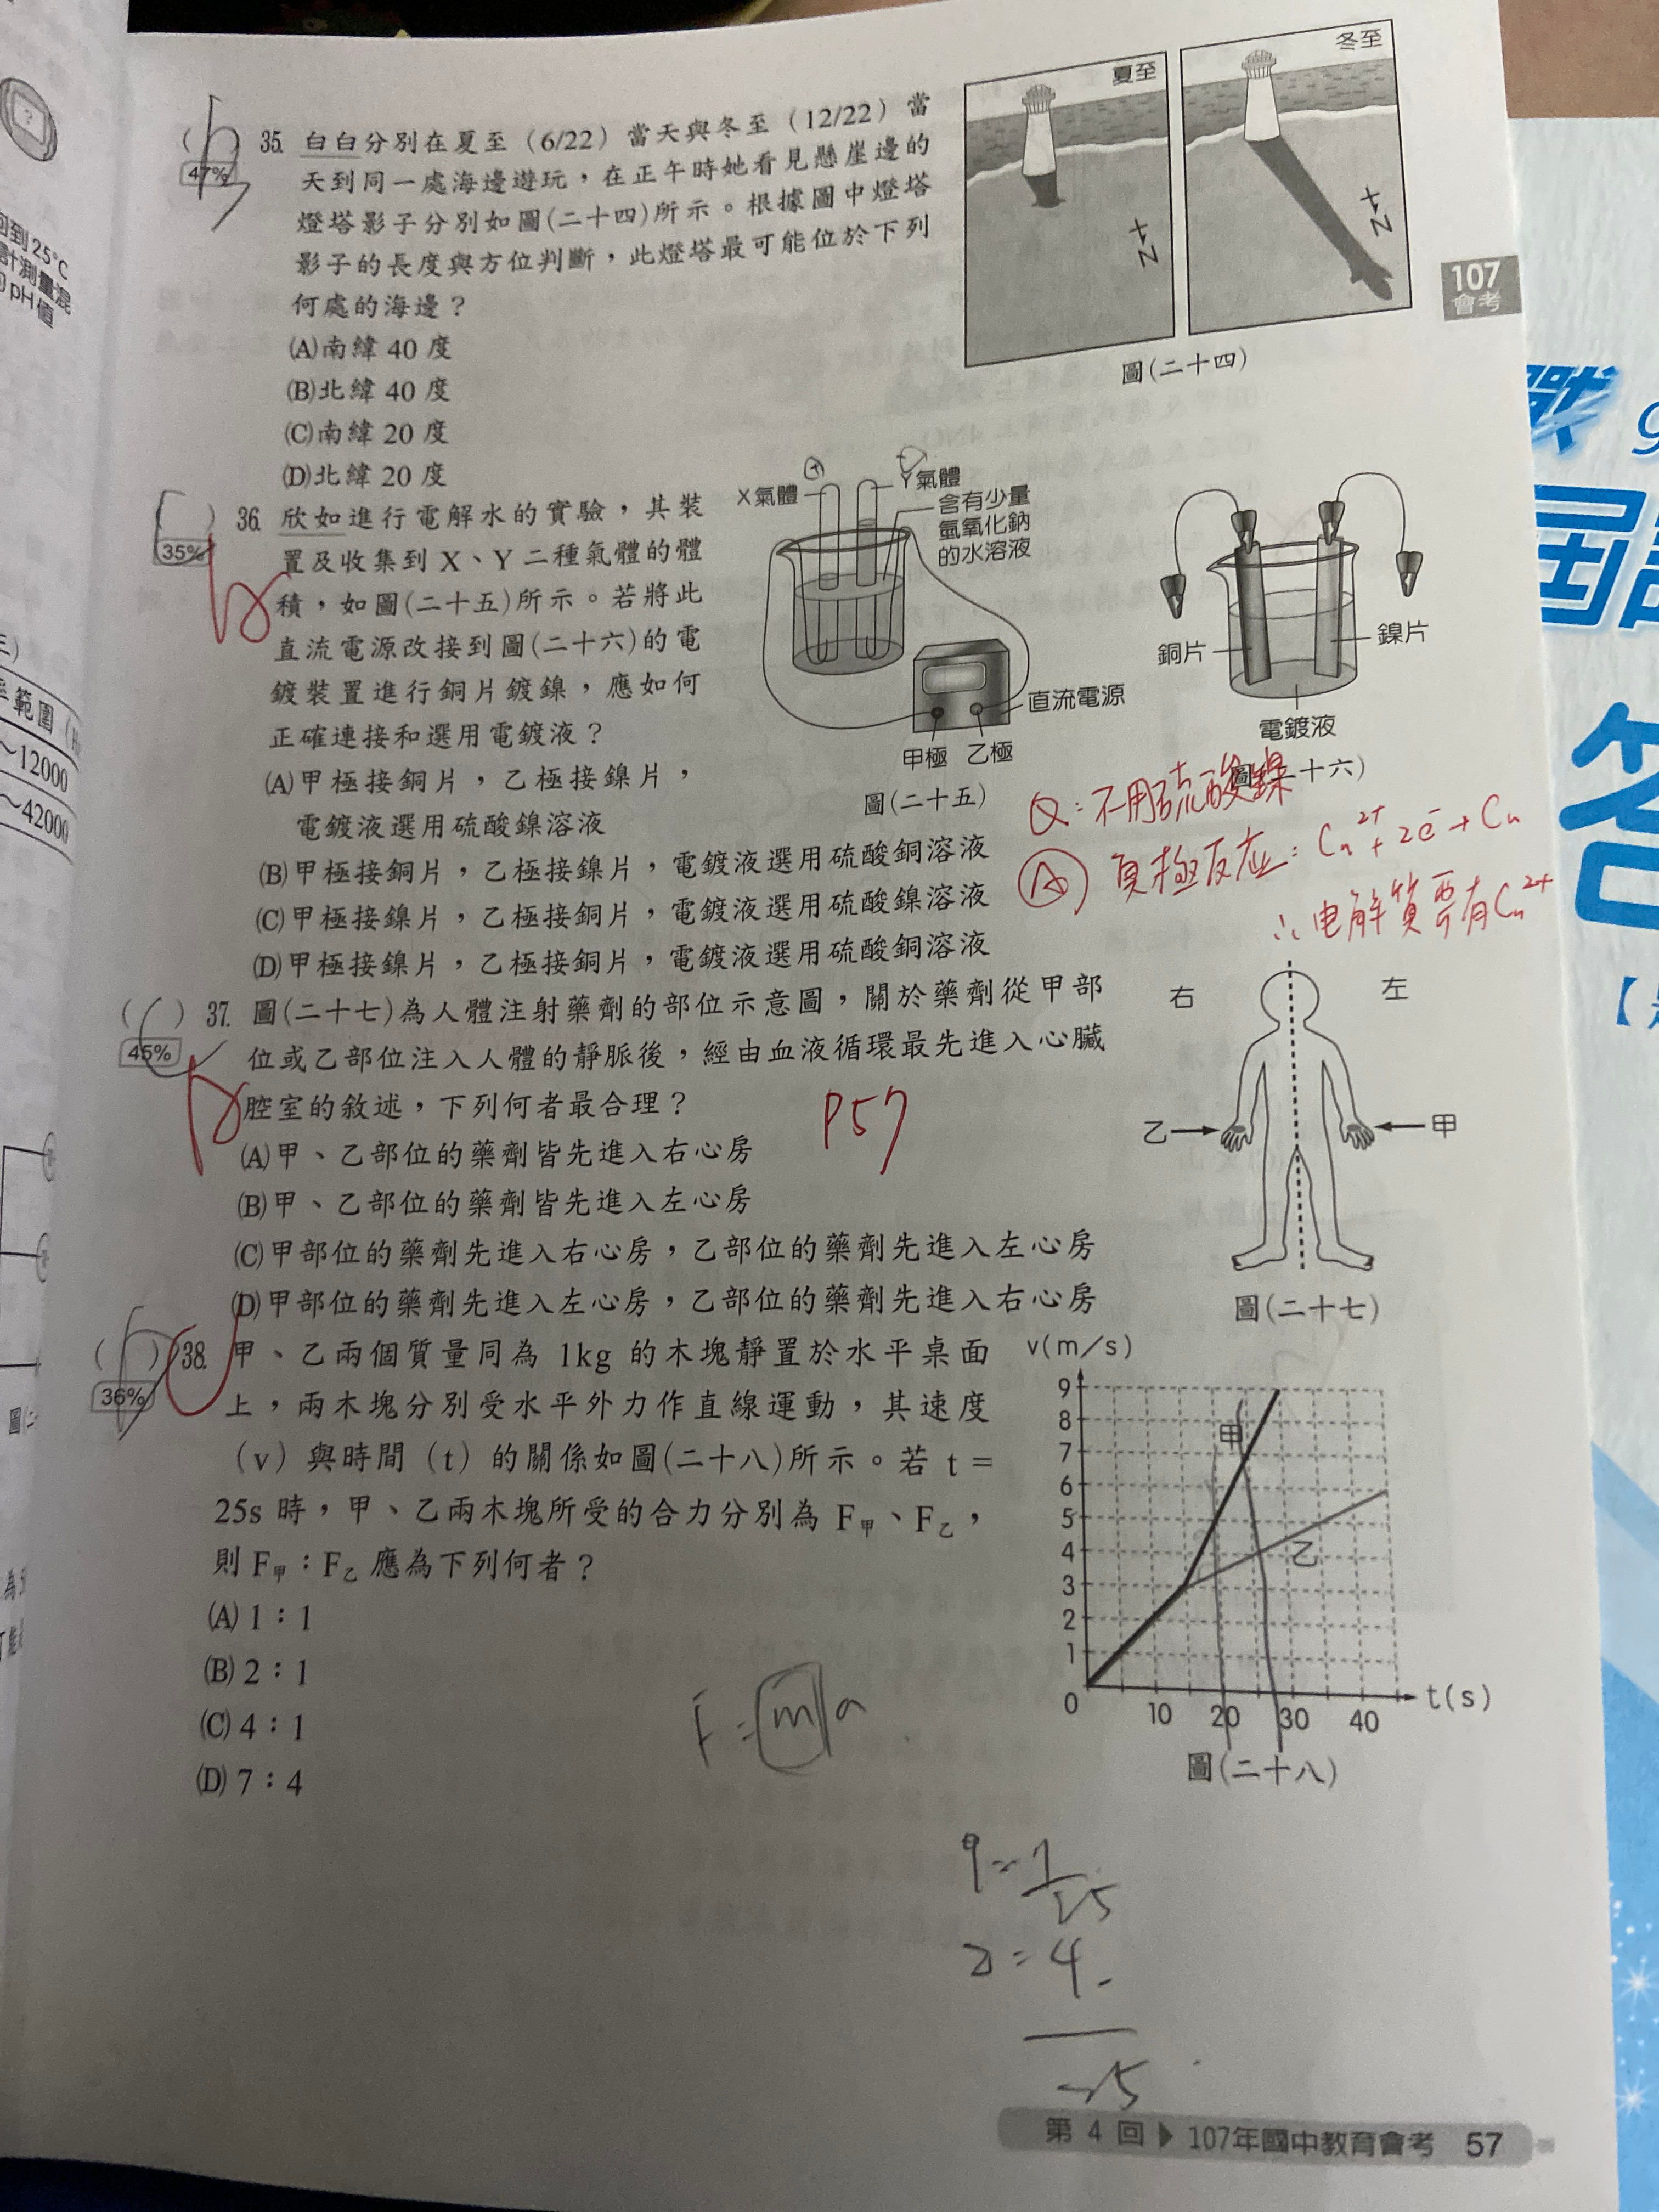 35. 白白分別在夏至（6/22）當天與冬至（12/22）當
天到同一處海邊遊玩，在正午時她看見懸崖邊的
燈塔影子分別如圖(二十四)所示。根據圖中燈塔
影子的長度與方位判斷，此燈塔最可能位於下列
何處的海邊？
47%
(A)南緯 40 度
(B)北緯 40 度
(C)南緯 20 度
(D)北緯 20 度
夏至
N
冬至
N
圖(二十四)
107
會考
36. 欣如進行電解水的實驗，其裝
置及收集到 X、Y 二種氣體的體
積，如圖(二十五)所示。若將此
直流電源改接到圖(二十六)的電
鍍裝置進行銅片鍍鎳，應如何
正確連接和選用電鍍液？
35%
(A)甲極接銅片，乙極接鎳片，
電鍍液選用硫酸鎳溶液
(B)甲極接銅片，乙極接鎳片，電鍍液選用硫酸銅溶液
(C)甲極接鎳片，乙極接銅片，電鍍液選用硫酸鎳溶液
(D)甲極接鎳片，乙極接銅片，電鍍液選用硫酸銅溶液
X氣體
Y氣體
含有少量
氫氧化鈉
的水溶液
直流電源
甲極 乙極
圖(二十五)
銅片
鎳片
電鍍液
十六)
Q：不用硫酸鎳
A 負極反应：Cu²⁺+2e⁻→Cu
∴电解質要有Cu²⁺
37. 圖(二十七)為人體注射藥劑的部位示意圖，關於藥劑從甲部
位或乙部位注入人體的靜脈後，經由血液循環最先進入心臟
腔室的敘述，下列何者最合理？
45%
P57
(A)甲、乙部位的藥劑皆先進入右心房
(B)甲、乙部位的藥劑皆先進入左心房
(C)甲部位的藥劑先進入右心房，乙部位的藥劑先進入左心房
(D)甲部位的藥劑先進入左心房，乙部位的藥劑先進入右心房
右
左
乙
甲
圖(二十七)
38. 甲、乙兩個質量同為 1kg 的木塊靜置於水平桌面
上，兩木塊分別受水平外力作直線運動，其速度
（v）與時間（t）的關係如圖(二十八)所示。若 t＝
25s 時，甲、乙兩木塊所受的合力分別為 F甲、F乙，
則 F甲：F乙 應為下列何者？
36%
(A) 1：1
(B) 2：1
(C) 4：1
(D) 7：4
v(m/s)
9
8
7
6
5
4
3
2
1
0
10 20 30 40
t(s)
甲
乙
圖(二十八)
F=ma
第 4 回 ▶ 107年國中教育會考 57
回到 25°C
pH值
範圍
~12000
~42000
答